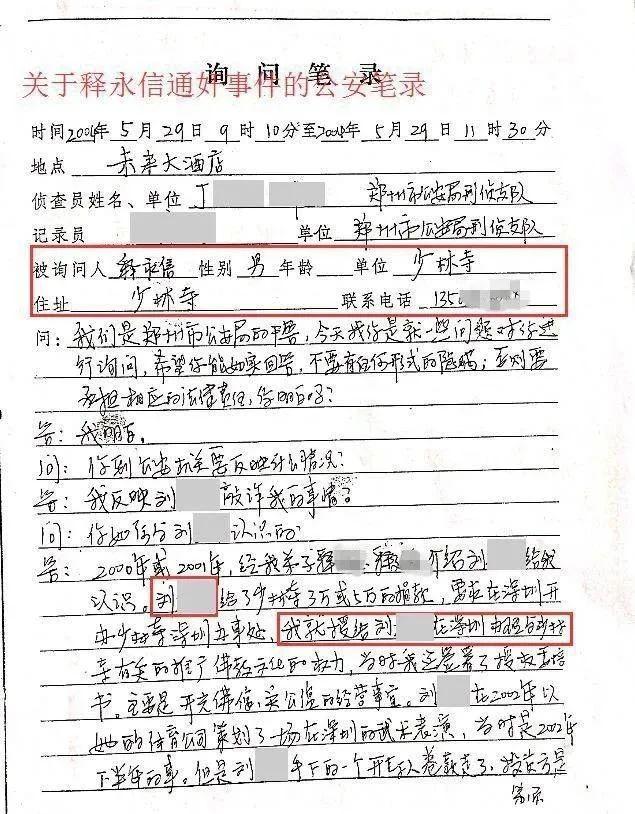 询问笔录
关于释永信通奸事件的公安笔录
时间2004年5月29日9时10分至2004年5月29日11时30分
地点 未来大酒店
侦查员姓名、单位 丁 郑州市公安局刑侦支队
记录员 单位 郑州市公安局刑侦支队
被询问人 释永信 性别 男 年龄 单位 少林寺
住址 少林寺 联系电话 135
问：我们是郑州市公安局的干警，今天找你是就一些问题对你进
行询问，希望你能如实回答，不要有任何形式的隐瞒；否则要
承担相应的法律责任，你明白吗？
答：我明白。
问：你到公安机关要反映什么情况？
答：我反映刘 敲诈我的事情？
问：你如何与刘 认识的
答：2000年或2001年，经我弟子释 释 介绍刘 给我
认识。刘 给了少林寺3万或5万的捐款，要求在深圳开
办少林寺深圳办事处，我就授给刘 在深圳办理与少林
寺有关的推广佛教文化的权力，当时我还签署了授权委托
书。主要是开光佛信，卖公园的经营事宜。刘 在2002年以
她的体育公司策划了一场在深圳的武术表演，当时是2002年
下半年的事。但是刘 手下的一个开车人卷款走了，投资方是